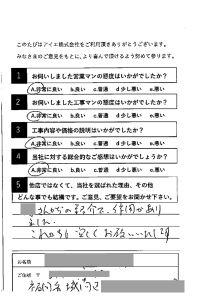 このたびはアイエ株式会社をご利用頂きありがとうございます。
みなさまのご意見をもとに、より喜んで頂けるよう努めて参ります。
1 お伺いしました営業マンの態度はいかがでしたか？
A.非常に良い b.良い c.普通 d 少し悪い e.悪い
2 お伺いしました工事マンの態度はいかがでしたか？
A.非常に良い b.良い c.普通 d 少し悪い e.悪い
3 工事内容や価格の説明はいかがでしたか？
A.非常に良い b.良い c.普通 d 少し悪い e.悪い
4 当社に対する総合的なご感想はいかがでしょうか？
A.非常に良い b.良い c.普通 d 少し悪い e.悪い
5 他店ではなくて、当社を選ばれた理由、その他
どんな事でも結構です。ご意見、ご要望をお聞かせ下さい。
さんからの紹介で、信用があり
ました。
これからも宜しくお願いいたします
お名前
ご住所 〒